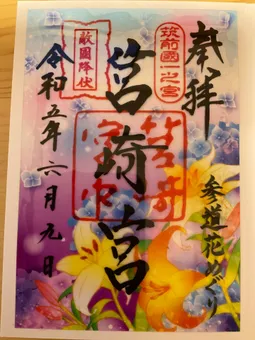 奉拝
筑前國一之宮
参道花めぐり
筥崎宮
敵國降伏
令和五年六月九日